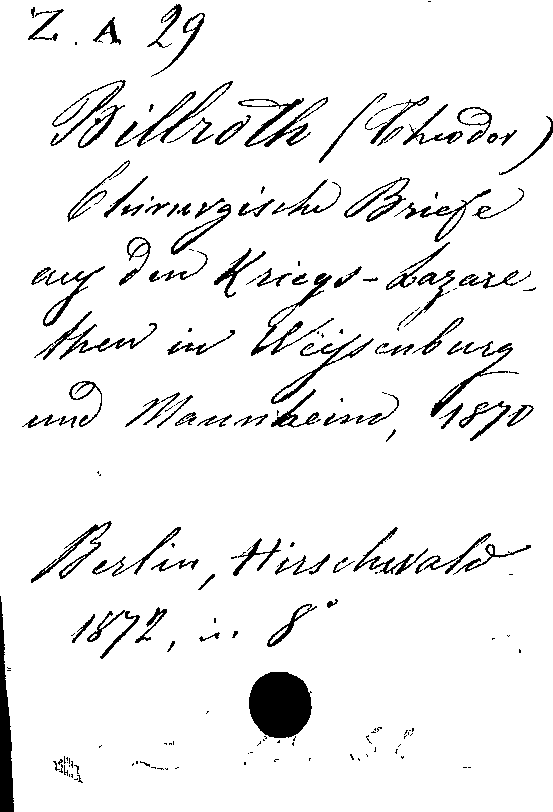 Z. A 29
Billroth (Theodor)
Chirurgische Briefe
aus den Kriegs-Lazare-
then in Weissenburg
und Mannheim, 1870
Berlin, Hirschwald
1872, in 8°